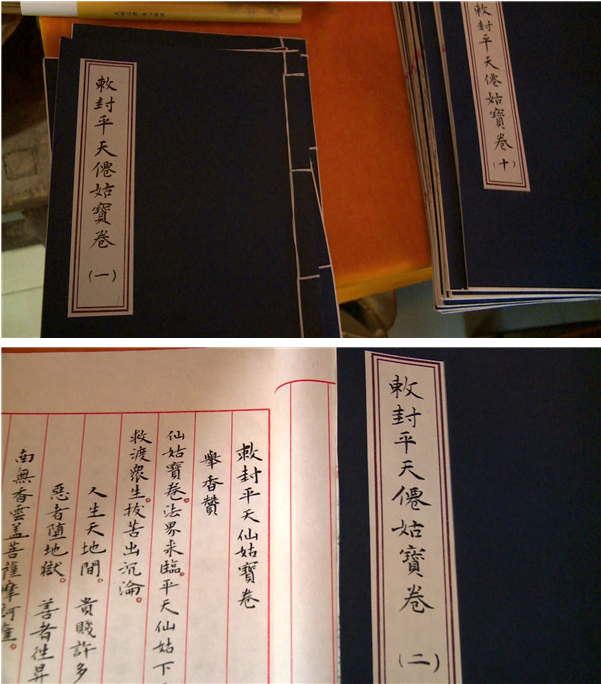 敕封平天僊姑寶卷
(一)
敕封平天僊姑寶卷
(十)
敕封平天仙姑寶卷
舉香贊
仙姑寶卷。法界来臨。平天仙姑下
救渡眾生。拔苦出沉淪。
人生天地間。貴賤許多
惡者隨地獄。善者往昇
南無香雲盖菩薩摩訶薩。
敕封平天僊姑寶卷
(二)